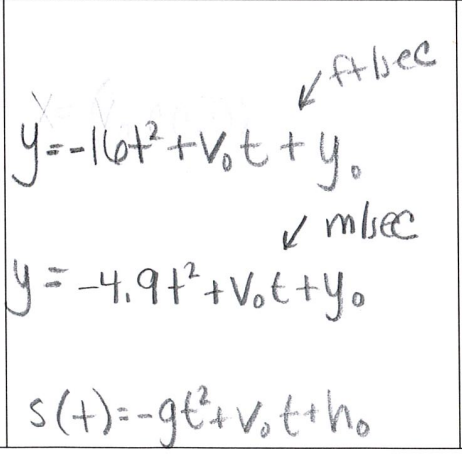 ft/sec
y=-16t²+v₀t+y₀
m/sec
y=-4.9t²+v₀t+y₀
s(t)=-gt²+v₀t+h₀